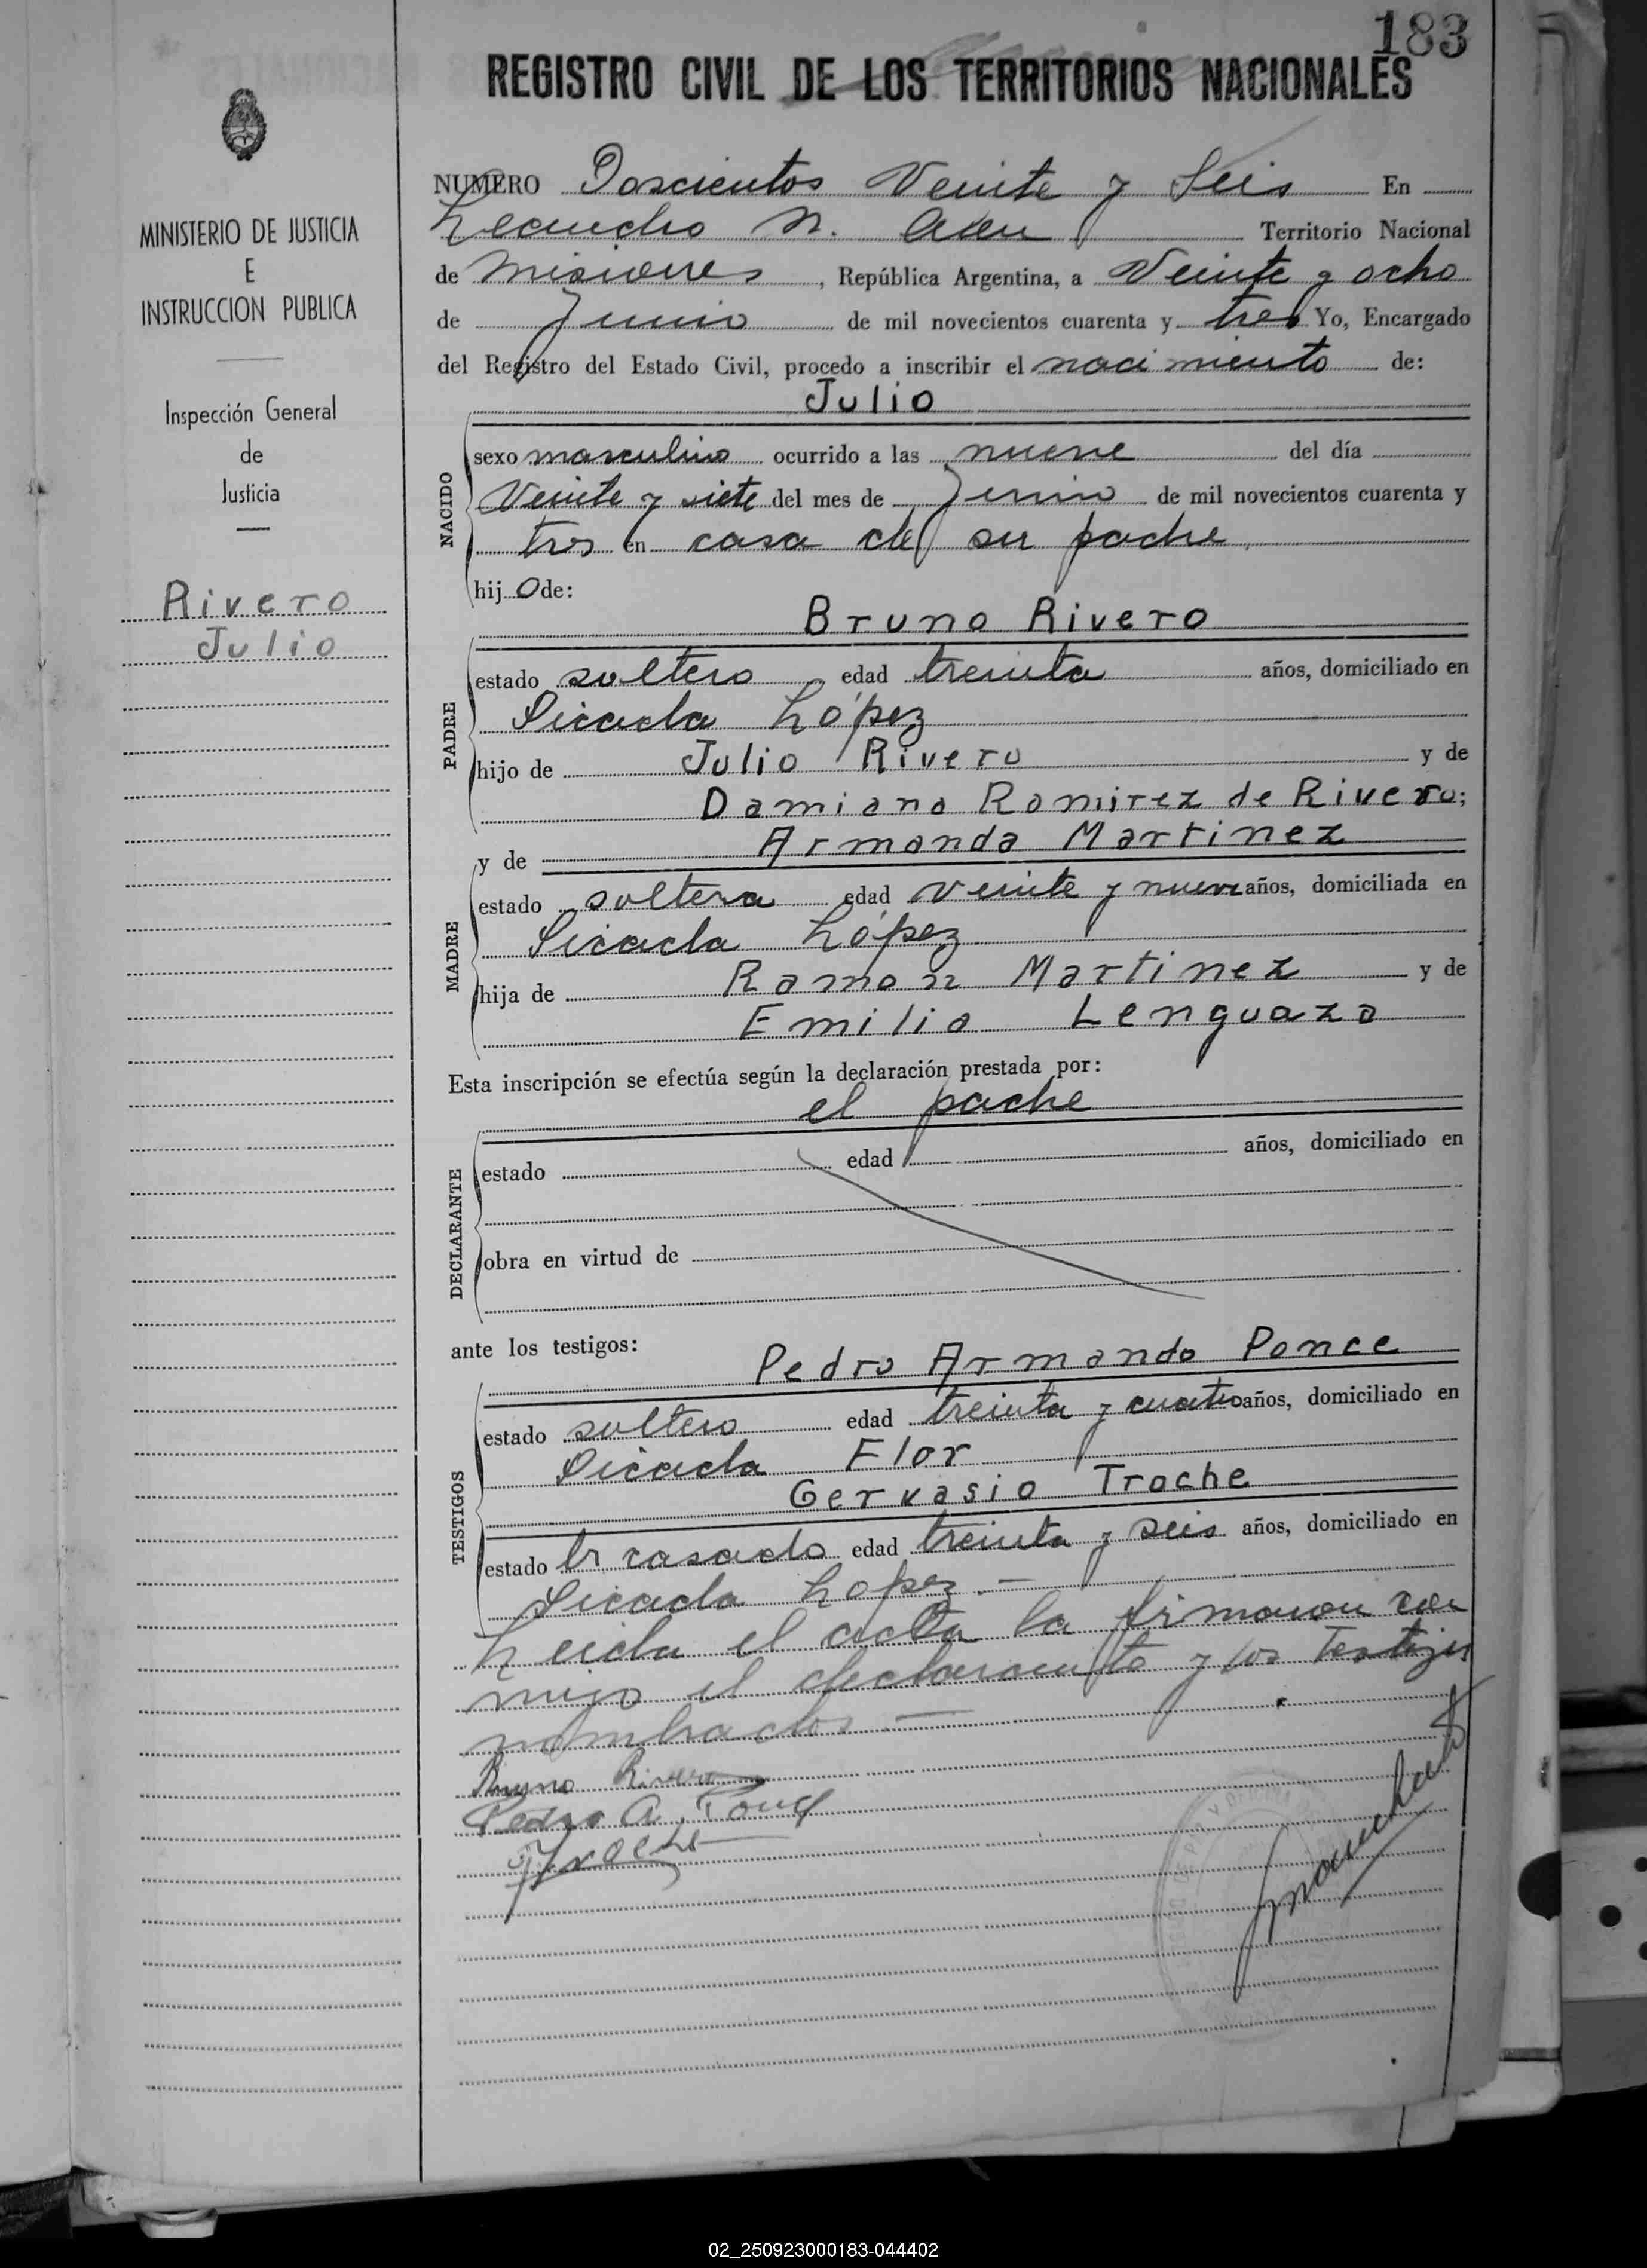 183
REGISTRO CIVIL DE LOS TERRITORIOS NACIONALES
MINISTERIO DE JUSTICIA
E
INSTRUCCION PUBLICA
Inspección General
de
Justicia
Rivero
Julio
NUMERO Doscientos Veinte y Seis En
Leandro N. Alem Territorio Nacional
de Misiones, República Argentina, a Veinte y ocho
de Junio de mil novecientos cuarenta y tres Yo, Encargado
del Registro del Estado Civil, procedo a inscribir el nacimiento de:
Julio
NACIDO
sexo masculino ocurrido a las nueve del día
Veinte y siete del mes de Junio de mil novecientos cuarenta y
tres en casa de su padre
hijo de:
Bruno Rivero
PADRE
estado soltero edad treinta años, domiciliado en
Picada López
hijo de Julio Rivero y de
Damiana Ramirez de Rivero;
y de Armanda Martinez
MADRE
estado soltera edad veinte y nueve años, domiciliada en
Picada López
hija de Ramon Martinez y de
Emilia Lenguaza
Esta inscripción se efectúa según la declaración prestada por:
el padre
DECLARANTE
estado edad años, domiciliado en
obra en virtud de
ante los testigos:
Pedro Armando Ponce
TESTIGOS
estado soltero edad treinta y cuatro años, domiciliado en
Picada Flor
Gervasio Troche
estado casado edad treinta y seis años, domiciliado en
Picada Lopez.—
Leida el acta la firmaron con
migo el declarante y los Testigos
nombrados.—
Bruno Rivero
Pedro A. Ponce
Troche
02_250923000183-044402